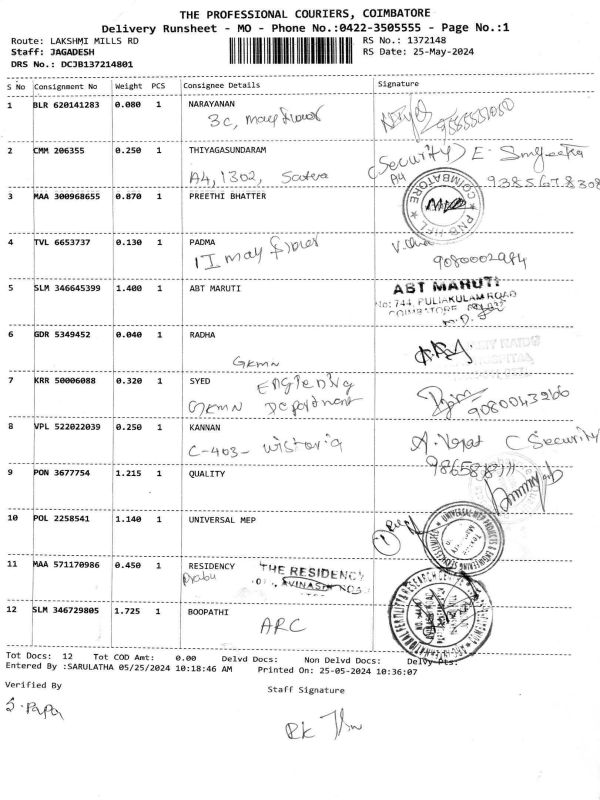 THE PROFESSIONAL COURIERS, COIMBATORE
Delivery Runsheet - MO - Phone No.:0422-3505555 - Page No.:1
Route: LAKSHMI MILLS RD RS No.: 1372148
Staff: JAGADESH RS Date: 25-May-2024
DRS No.: DCJB137214801
S No Consignment No Weight PCS Consignee Details Signature
1 BLR 620141283 0.080 1 NARAYANAN
3c, may flower
2 CMM 206355 0.250 1 THIYAGASUNDARAM (Security) E.
A4, 1302, A4 9385678308
3 MAA 300968655 0.870 1 PREETHI BHATTER
COIMBATORE
PNB HFL
4 TVL 6653737 0.130 1 PADMA
1 I may flower 9080002984
5 SLM 346645399 1.400 1 ABT MARUTI ABT MARUTI
No: 744, PULIAKULAM ROAD
COIMBATORE
6 GDR 5349452 0.040 1 RADHA
GKMN
7 KRR 50006088 0.320 1 SYED
GKMN Department 9080043266
8 VPL 522022039 0.250 1 KANNAN (Security)
C-403-
9 PON 3677754 1.215 1 QUALITY
10 POL 2258541 1.140 1 UNIVERSAL MEP
UNIVERSAL MEP PROJECTS & ENGINEERING SERVICES LIMITED
11 MAA 571170986 0.450 1 RESIDENCY THE RESIDENCY
Prabu
12 SLM 346729805 1.725 1 BOOPATHI
ARC
Tot Docs: 12 Tot COD Amt: 0.00 Delvd Docs: Non Delvd Docs: Delvy Pts:
Entered By :SARULATHA 05/25/2024 10:18:46 AM Printed On: 25-05-2024 10:36:07
Verified By Staff Signature
S. Papa